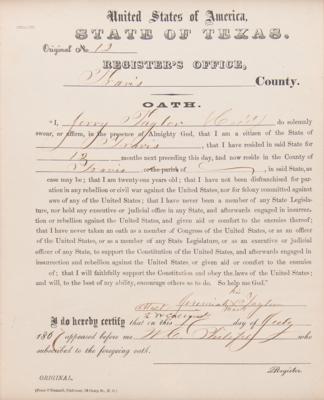 United States of America,
STATE OF TEXAS.
Original No. 12
REGISTER'S OFFICE,
Travis County.
OATH.
"I, Jerry Taylor do solemnly
swear, or affirm, in the presence of Almighty God, that I am a citizen of the State of
Travis, that I have resided in said State for
12 months next preceding this day, and now reside in the County of
Travis or the parish of , in said State, as
case may be; that I am twenty-one years old; that I have not been disfranchised for par-
ation in any rebellion or civil war against the United States, nor for felony committed against
aws of any of the United States; that I have never been a member of any State Legisla-
ture, nor held any executive or judicial office in any State, and afterwards engaged in insurrec-
or rebellion against the United States, and given aid or comfort to the enemies thereof;
that I have never taken an oath as a member of Congress of the United States, or as an officer
of the United States, or as a member of any State Legislature, or as an executive or judicial
officer of any State, to support the Constitution of the United States, and afterwards engaged in
insurrection and rebellion against the United States, or given aid or comfort to the enemies
of; that I will faithfully support the Constitution and obey the laws of the United States; and
will, to the best of my ability, encourage others so to do. So help me God."
his
Attest Jeremiah Taylor
mark
I do hereby certify that on this day of July
1867 appeared before me who
subscribed to the foregoing oath.
Register.
ORIGINAL.